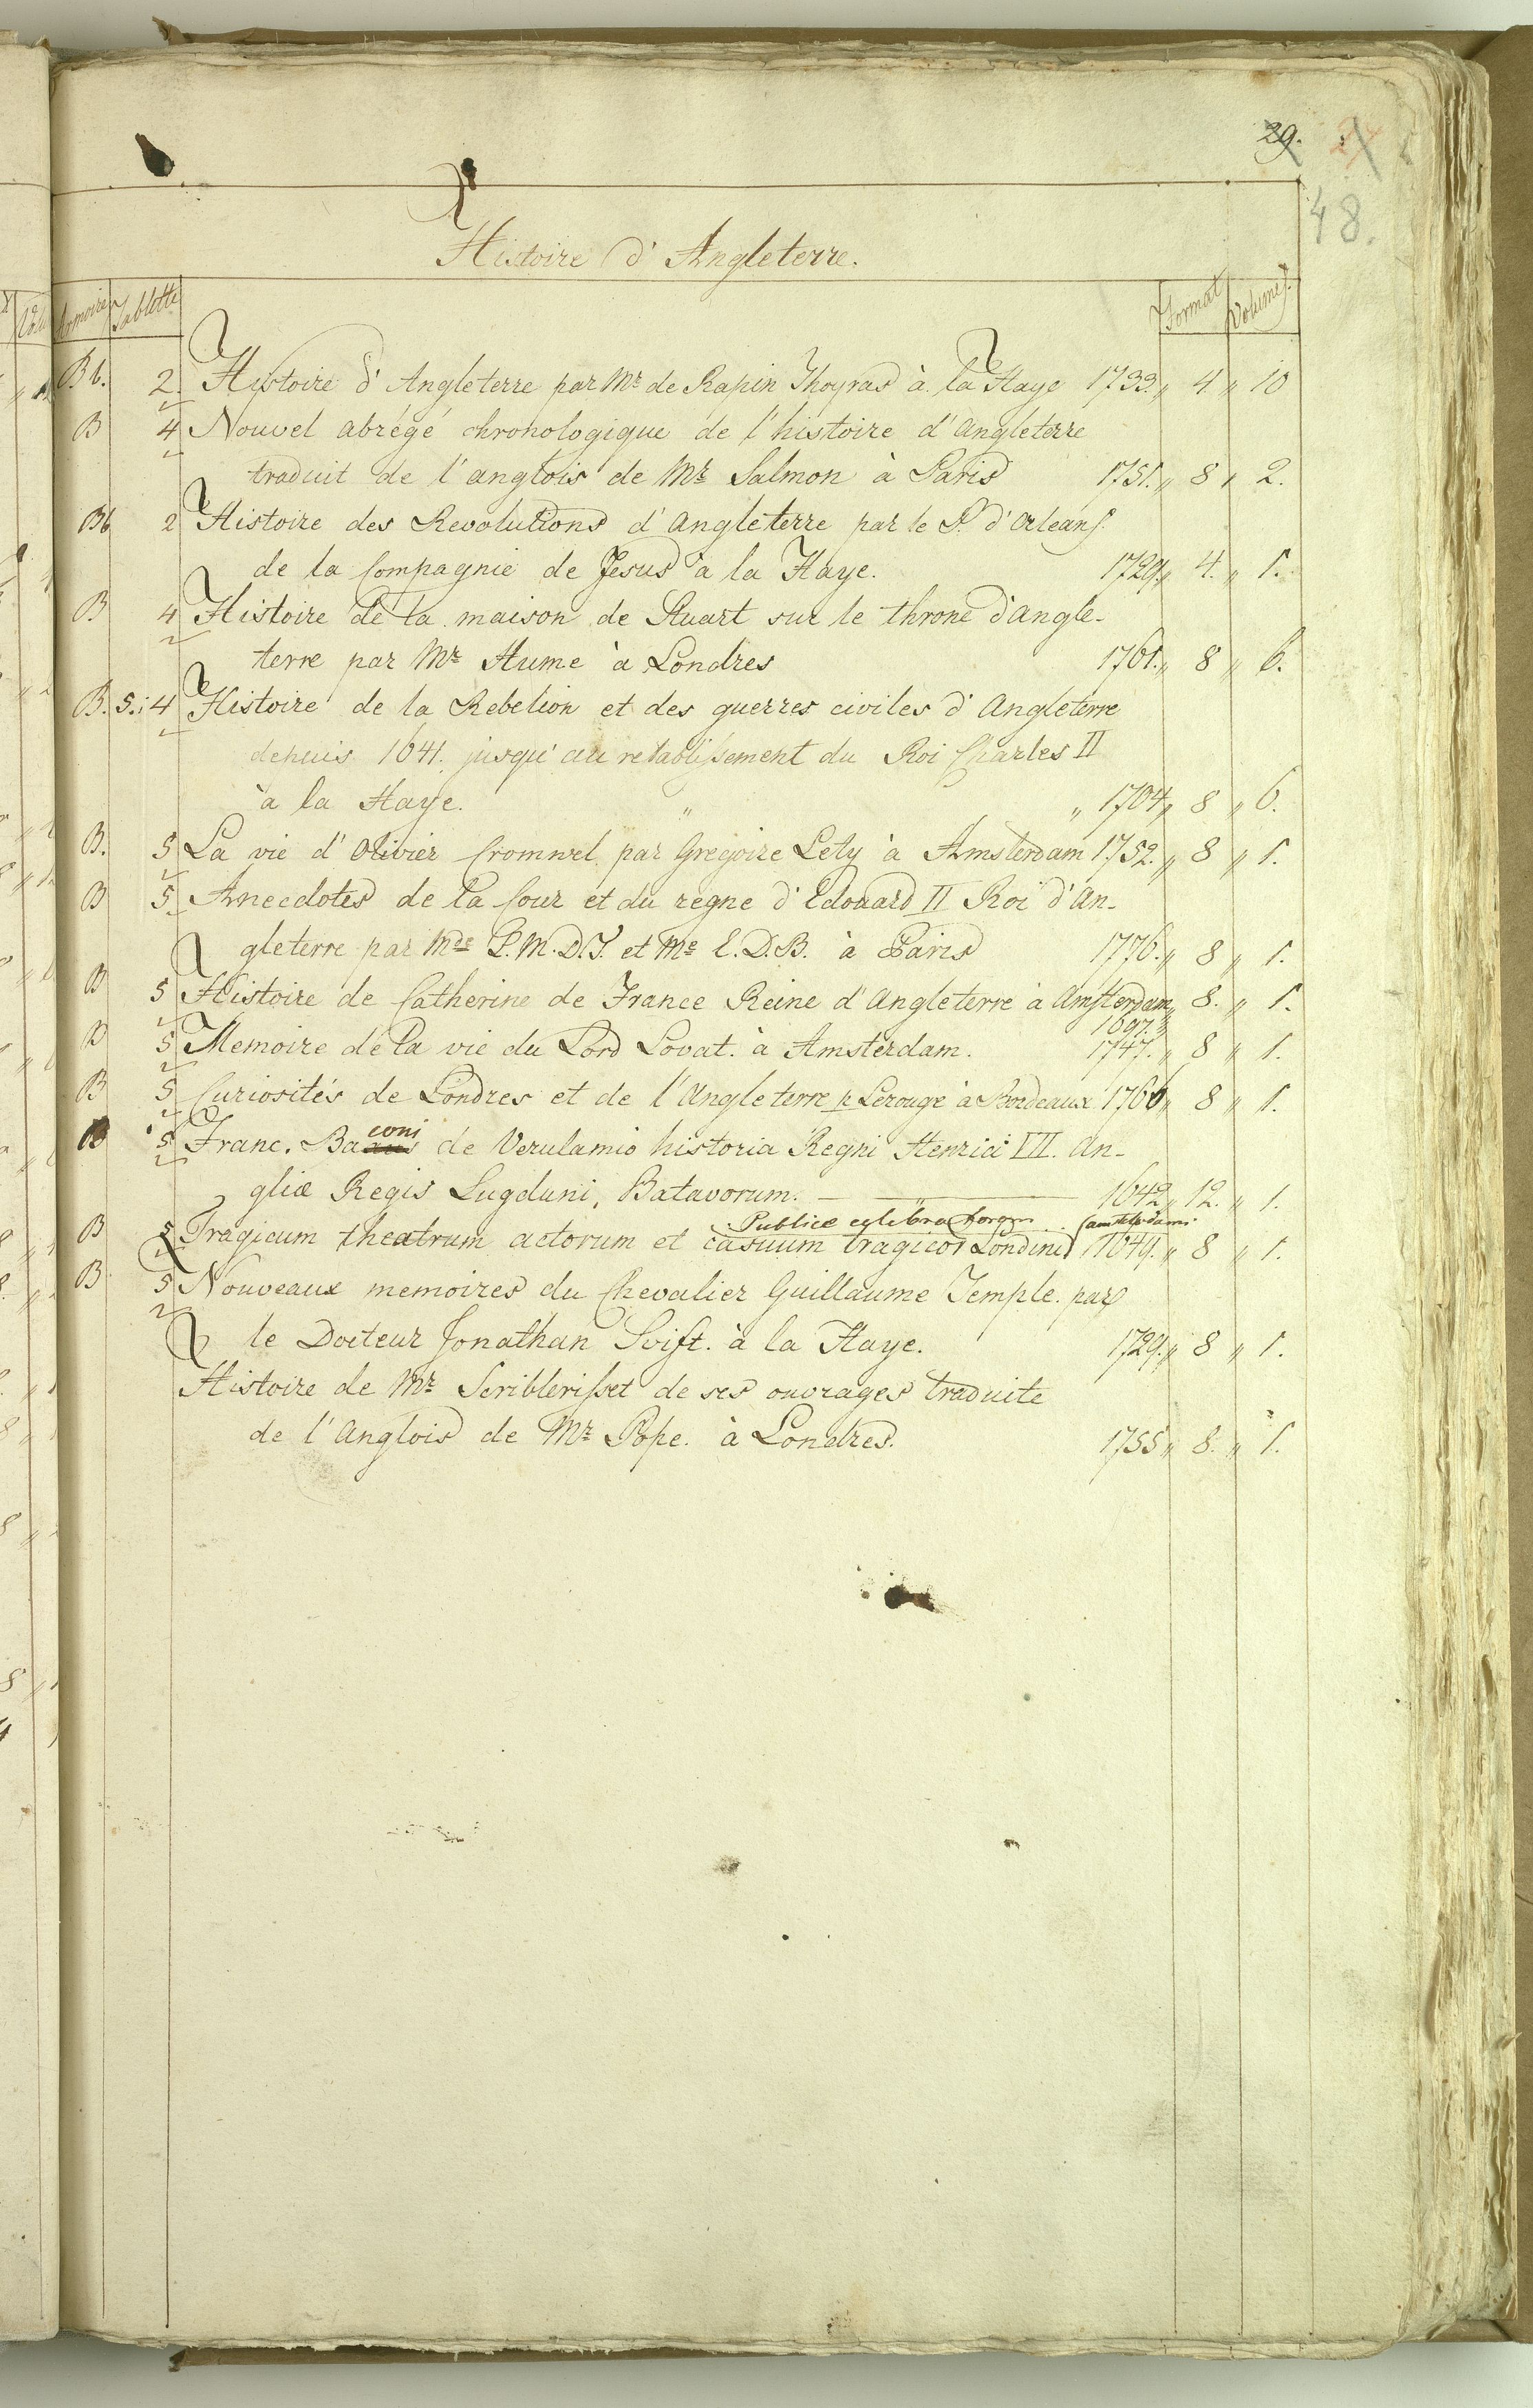 29.
48.
Histoire d'Angleterre.
Armoires Tablette Format Volumes.
Bb. 2. Histoire d'Angleterre par Mr de Rapin Thoyras à la Haye 1733. „ 4. „ 10
B 4 Nouvel abrégé chronologique de l'histoire d'Angleterre
traduit de l'anglois de Mr Salmon à Paris 1751. „ 8 „ 2.
Bb 2 Histoire des Revolutions d'Angleterre par le P. d'Orleans.
de la Compagnie de Jesus à la Haye. 1729. „ 4. „ 1.
B 4 Histoire de la maison de Stuart sur le throne d'Angle-
terre par Mr Hume à Londres 1761. „ 8 „ 6.
B. 5.: 4 Histoire de la Rebelion et des guerres civiles d'Angleterre
depuis 1641. jusqu'au retablissement du Roi Charles II
à la Haye. „ „ 1704 „ 8 „ 6.
B. 5 La vie d'Olivier Cromwel par Gregoire Lety à Amsterdam 1752. „ 8 „ 1.
B 5 Anecdotes de la Cour et du regne d'Edouard II Roi d'An-
gleterre par Mde L.M.D.T. et Me E.D.B. à Paris 1776. „ 8 „ 1.
B 5 Histoire de Catherine de France Reine d'Angleterre à Amsterdam „ 8. „ 1.
1697. „
B 5 Memoire de la vie du Lord Lovat. à Amsterdam. 1747. „ 8 „ 1.
B 5 Curiosités de Londres et de l'Angleterre p Lerouge à Bordeaux 1766 „ 8 „ 1.
coni
B 5 Franc. Ba de Verulamio historia Regni Henrici VII. An-
gliæ Regis Lugduni, Batavorum. — „ — 1642 „ 12. „ 1.
Publice celebratorum (amstelodami
B 5 Tragicum theatrum actorum et casuum tragicor Londini 1649. „ 8 „ 1.
B 5 Nouveaux memoires du Chevalier Guillaume Temple. par
le Docteur Jonathan Svift. à la Haye. 1729. „ 8 „ 1.
Histoire de Mr Scriblerisset de ses ouvrages traduite
de l'Anglois de Mr Pope. à Londres. 1755 „ 8. „ 1.